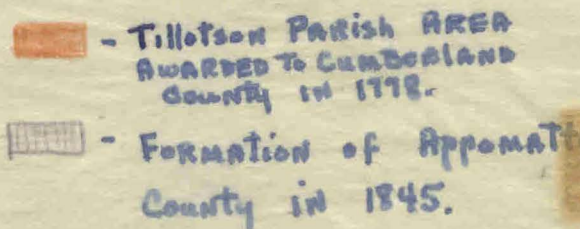 - Tillotson Parish AREA
AWARDED To CUMBERLAND
County IN 1778.
- Formation of Appomatt
County in 1845.